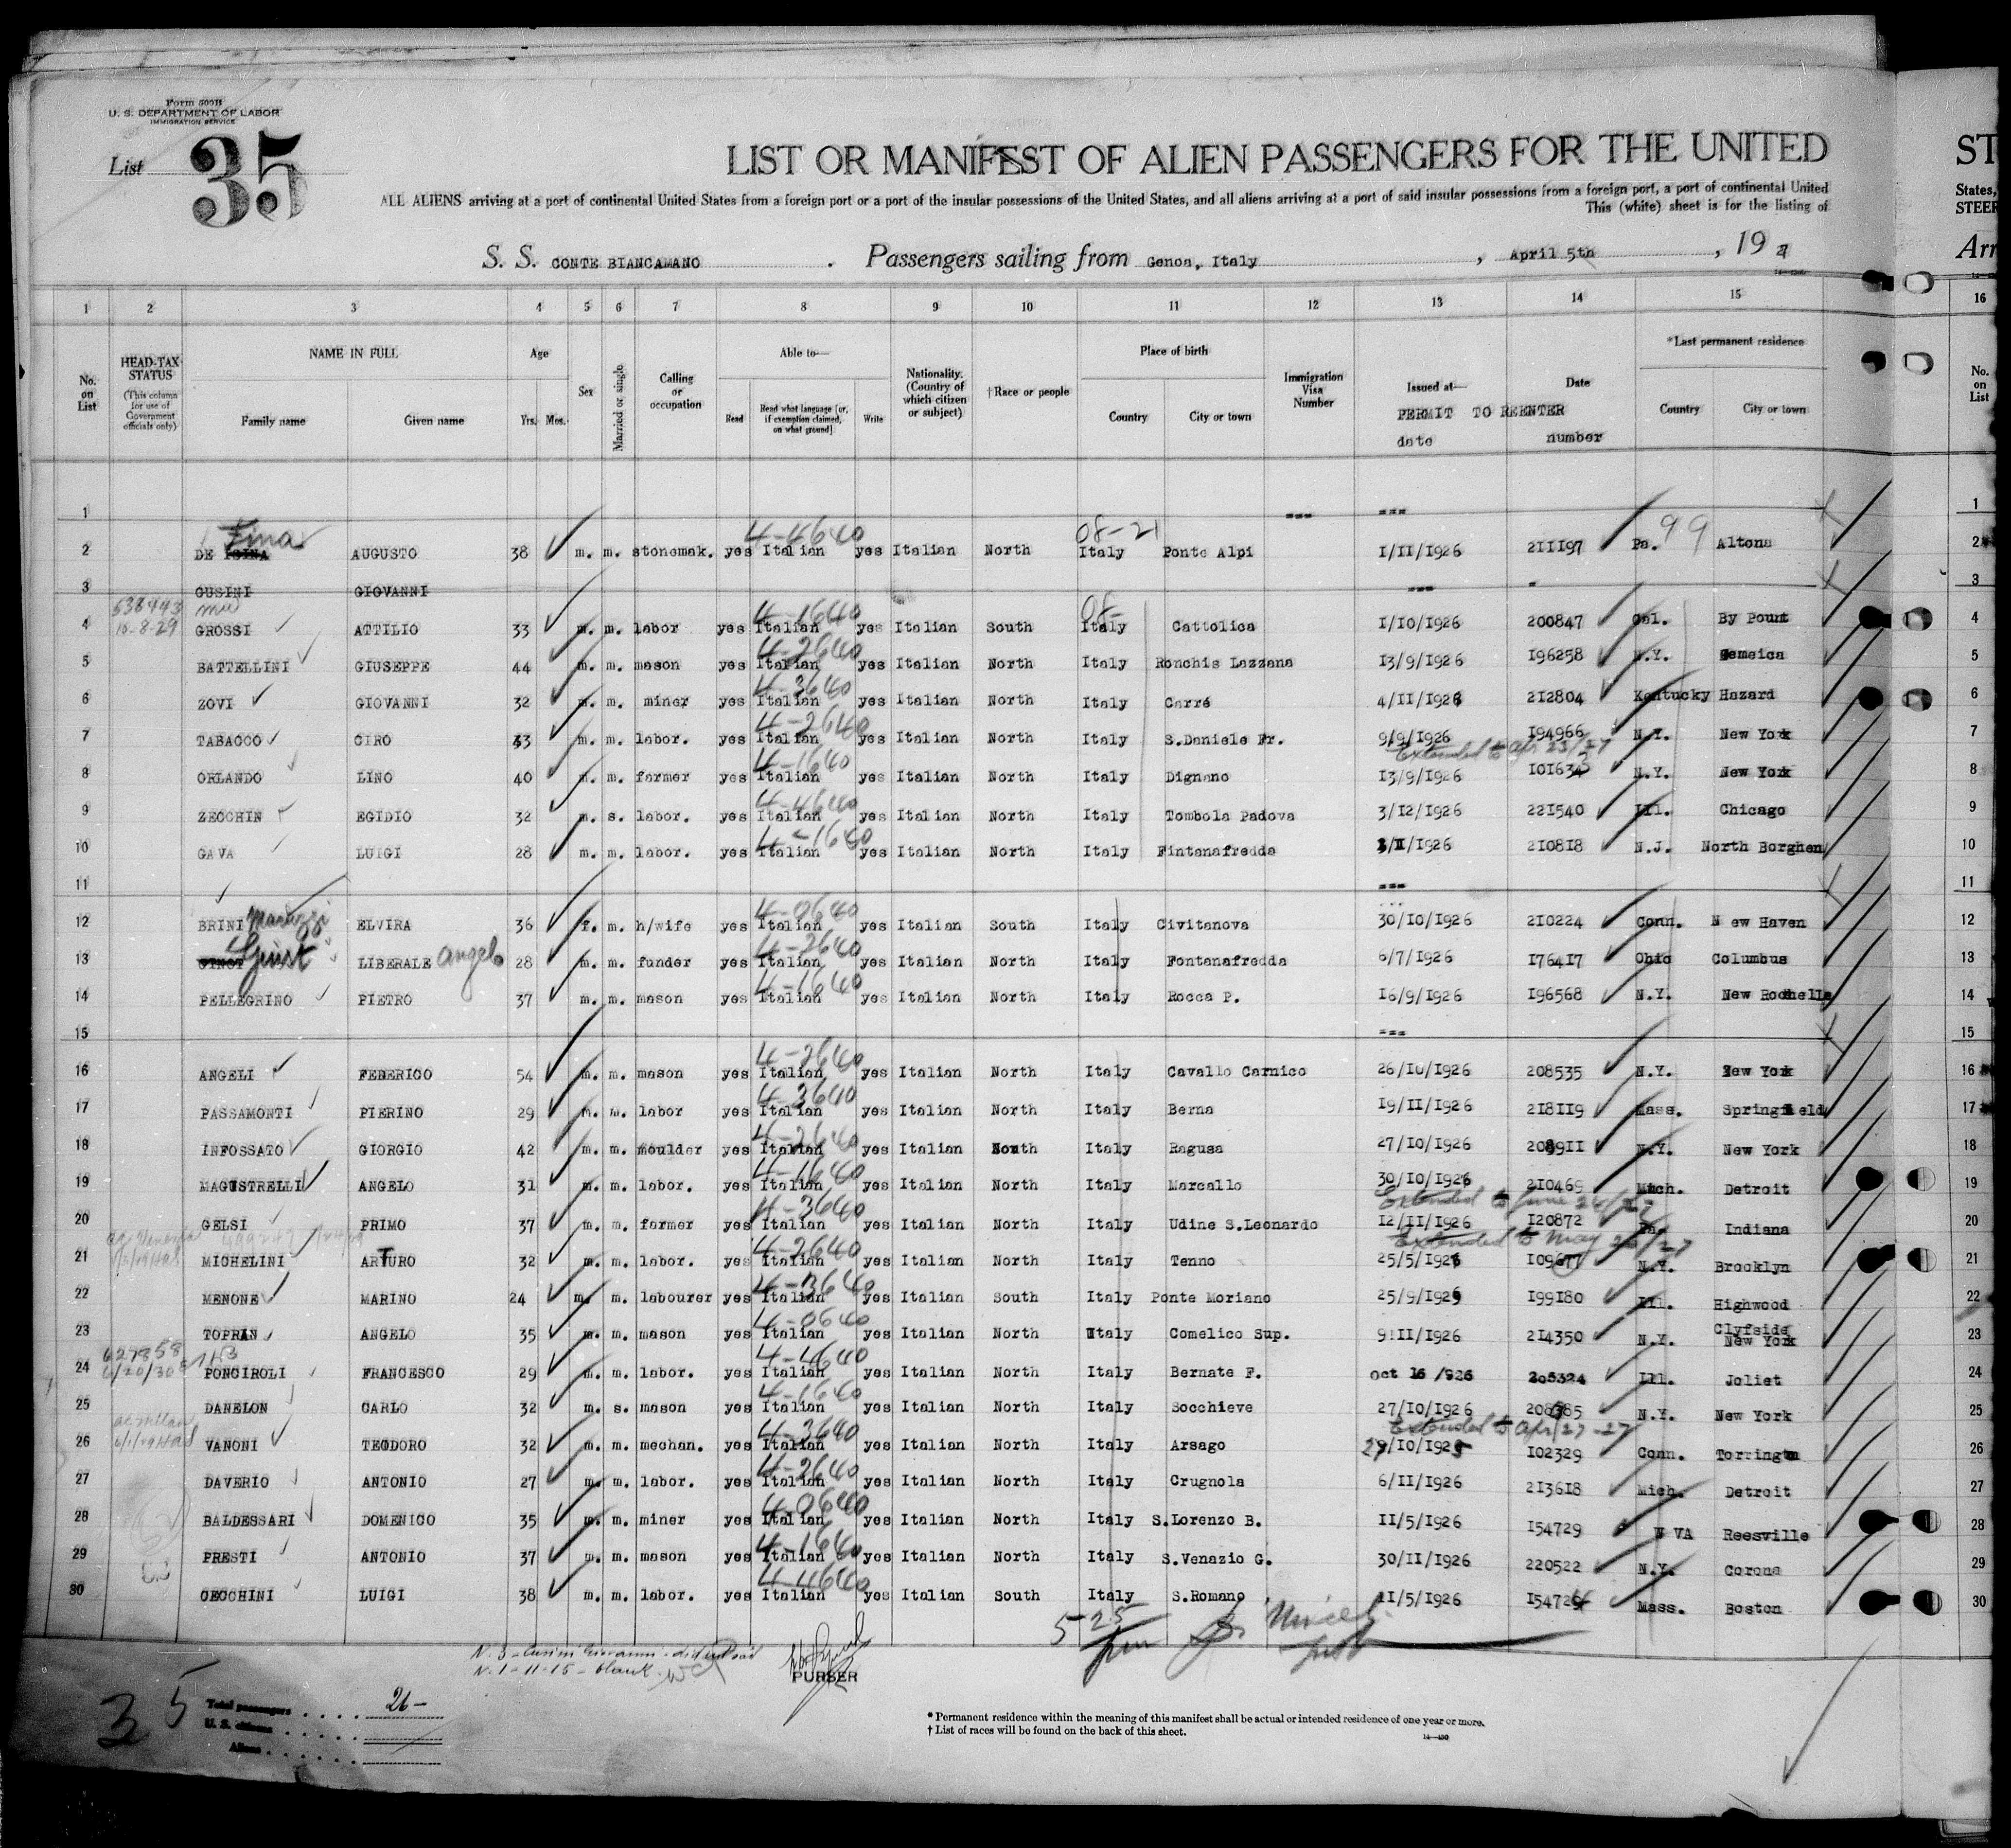 Form 500B
U. S. DEPARTMENT OF LABOR
IMMIGRATION SERVICE
List 35
LIST OR MANIFEST OF ALIEN PASSENGERS FOR THE UNITED
ST
ALL ALIENS arriving at a port of continental United States from a foreign port or a port of the insular possessions of the United States, and all aliens arriving at a port of said insular possessions from a foreign port, a port of continental United
States,
This (white) sheet is for the listing of
STEER
S. S. CONTE BIANCAMANO . Passengers sailing from Genoa, Italy , April 5th , 19 2
Arr
1 2 3 4 5 6 7 8 9 10 11 12 13 14 15 16
No. on List
HEAD-TAX STATUS (This column for use of Government officials only)
NAME IN FULL Family name Given name
Age Yrs. Mos.
Sex
Married or single
Calling or occupation
Able to— Read Read what language [or, if exemption claimed, on what ground] Write
Nationality. (Country of which citizen or subject)
†Race or people
Place of birth Country City or town
Immigration Visa Number
Issued at— PERMIT date
Date TO REENTER number
*Last permanent residence Country City or town
No. on List
1 --- --- 1
Fina 4-4640 08-21 99
2 DE AUGUSTO 38 m. m. stonemak. yes Italian yes Italian North Italy Ponte Alpi 1/II/1926 211197 Pa. Altona 2
3 GUSINI GIOVANNI --- - 3
538443 4-1640 08-
4 10-8-29 GROSSI ATTILIO 33 m. m. labor yes Italian yes Italian South Italy Cattolica 1/10/1926 200847 Cal. By Pount 4
4-2640
5 BATTELLINI GIUSEPPE 44 m. m. mason yes Italian yes Italian North Italy Ronchis Lazzana 13/9/1926 196258 N.Y. Gemeica 5
4-3640
6 ZOVI GIOVANNI 32 m. m. miner yes Italian yes Italian North Italy Carré 4/11/1926 212804 Kentucky Hazard 6
4-2640
7 TABACCO CIRO 43 m. m. labor. yes Italian yes Italian North Italy S.Daniele Fr. 9/9/1926 194966 N.Y. New York 7
4-1640 Extended to Apr 23/27
8 ORLANDO LINO 40 m. m. farmer yes Italian yes Italian North Italy Dignano 13/9/1926 101634 N.Y. New York 8
4-4640
9 ZECCHIN EGIDIO 32 m. s. labor. yes Italian yes Italian North Italy Tombola Padova 3/12/1926 221540 Ill. Chicago 9
4-1640
10 GAVA LUIGI 28 m. m. labor. yes Italian yes Italian North Italy Fintanafredda /II/1926 210818 N.J. North Borghen 10
11 --- 11
4-0640
12 BRINI ELVIRA 36 f. m. h/wife yes Italian yes Italian South Italy Civitanova 30/10/1926 210224 Conn. N ew Haven 12
4-2640
13 Giust LIBERALE Angelo 28 m. m. funder yes Italian yes Italian North Italy Fontanafredda 6/7/1926 176417 Ohio Columbus 13
4-1640
14 PELLEGRINO PIETRO 37 m. m. mason yes Italian yes Italian North Italy Rocca P. 16/9/1926 196568 N.Y. New Rochelle 14
15 --- 15
4-2640
16 ANGELI FEDERICO 54 m. m. mason yes Italian yes Italian North Italy Cavallo Carnico 26/10/1926 208535 N.Y. New York 16
4-3640
17 PASSAMONTI PIERINO 29 m. m. labor yes Italian yes Italian North Italy Berna 19/II/1926 218119 Mass. Springfield 17
4-2640
18 INFOSSATO GIORGIO 42 m. m. moulder yes Italian yes Italian South Italy Ragusa 27/10/1926 208911 N.Y. New York 18
4-1640
19 MAGISTRELLI ANGELO 31 m. m. labor. yes Italian yes Italian North Italy Marcallo 30/10/1926 210469 Mich. Detroit 19
4-3640 Extended to June 24/27
20 GELSI PRIMO 37 m. m. farmer yes Italian yes Italian North Italy Udine S.Leonardo 12/II/1926 120872 Pa. Indiana 20
4-2640 Extended to May 26/27
21 MICHELINI ARTURO 32 m. m. labor. yes Italian yes Italian North Italy Tenno 25/5/1926 109677 N.Y. Brooklyn 21
4-3640
22 MENONE MARINO 24 m. m. labourer yes Italian yes Italian South Italy Ponte Moriano 25/9/1926 199180 Ill. Highwood 22
4-0640
23 TOPRAN ANGELO 35 m. m. mason yes Italian yes Italian North Italy Comelico Sup. 9!II/1926 214350 N.Y. Clyfside New York 23
627858 4-4640
24 6/20/30 PONCIROLI FRANCESCO 29 m. m. labor. yes Italian yes Italian North Italy Bernate F. Oct 16 /926 205324 Ill. Joliet 24
4-1640
25 DANELON CARLO 32 m. s. mason yes Italian yes Italian North Italy Socchieve 27/10/1926 208985 N.Y. New York 25
4-3640 Extended to Apr/27-27
26 VANONI TEODORO 32 m. m. mechan. yes Italian yes Italian North Italy Arsago 29/10/1925 102329 Conn. Torrington 26
4-2640
27 DAVERIO ANTONIO 27 m. m. labor. yes Italian yes Italian North Italy Crugnola 6/II/1926 213618 Mich. Detroit 27
4-0640
28 BALDESSARI DOMENICO 35 m. m. miner yes Italian yes Italian North Italy S.Lorenzo B. II/5/1926 154729 W VA Reesville 28
4-1640
29 PRESTI ANTONIO 37 m. m. mason yes Italian yes Italian North Italy S.Venazio G. 30/II/1926 220522 N.Y. Corona 29
4-4640
30 CECCHINI LUIGI 38 m. m. labor. yes Italian yes Italian South Italy S.Romano II/5/1926 154724 Mass. Boston 30
5-25
N. 3 - Gusini Giovanni - did not sail
N. 1-11-15 - blank
PURSER
35
Total passengers . . . . 26-
U. S. citizens . . . .
Aliens . . . . .
* Permanent residence within the meaning of this manifest shall be actual or intended residence of one year or more.
† List of races will be found on the back of this sheet.